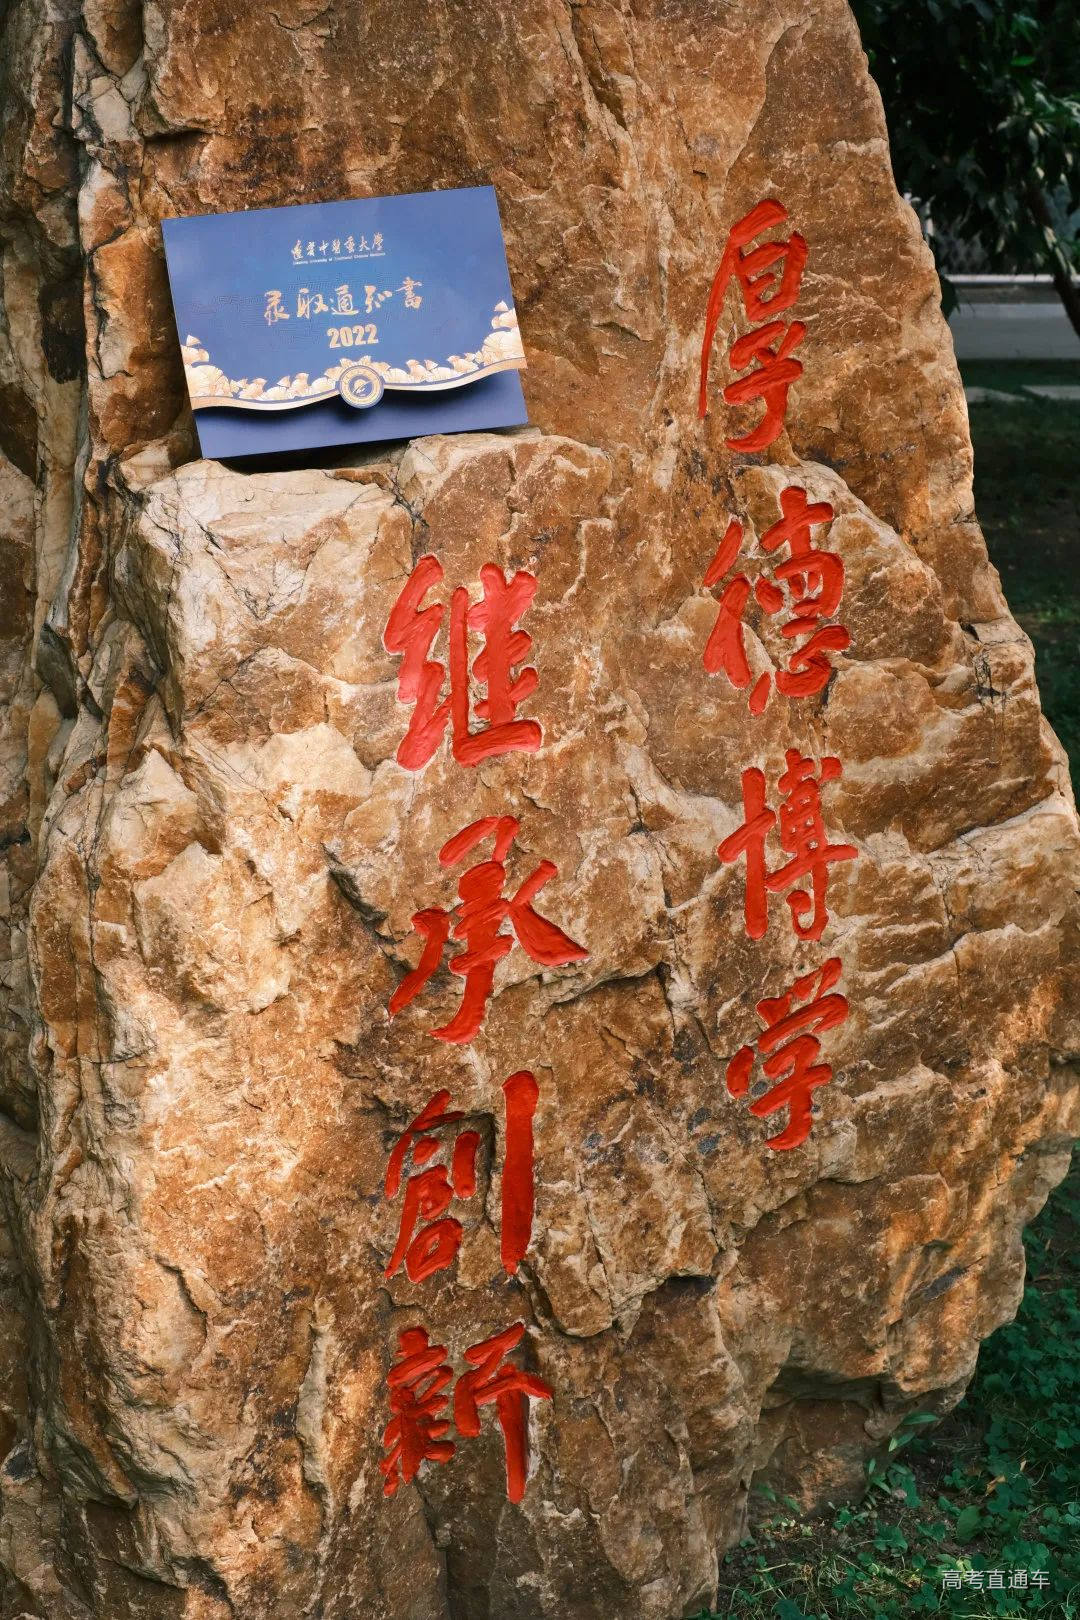 遼寧中醫藥大學
Liaoning University of Traditional Chinese Medicine
录取通知書
2022
厚德博学
继承創新
高考直通车